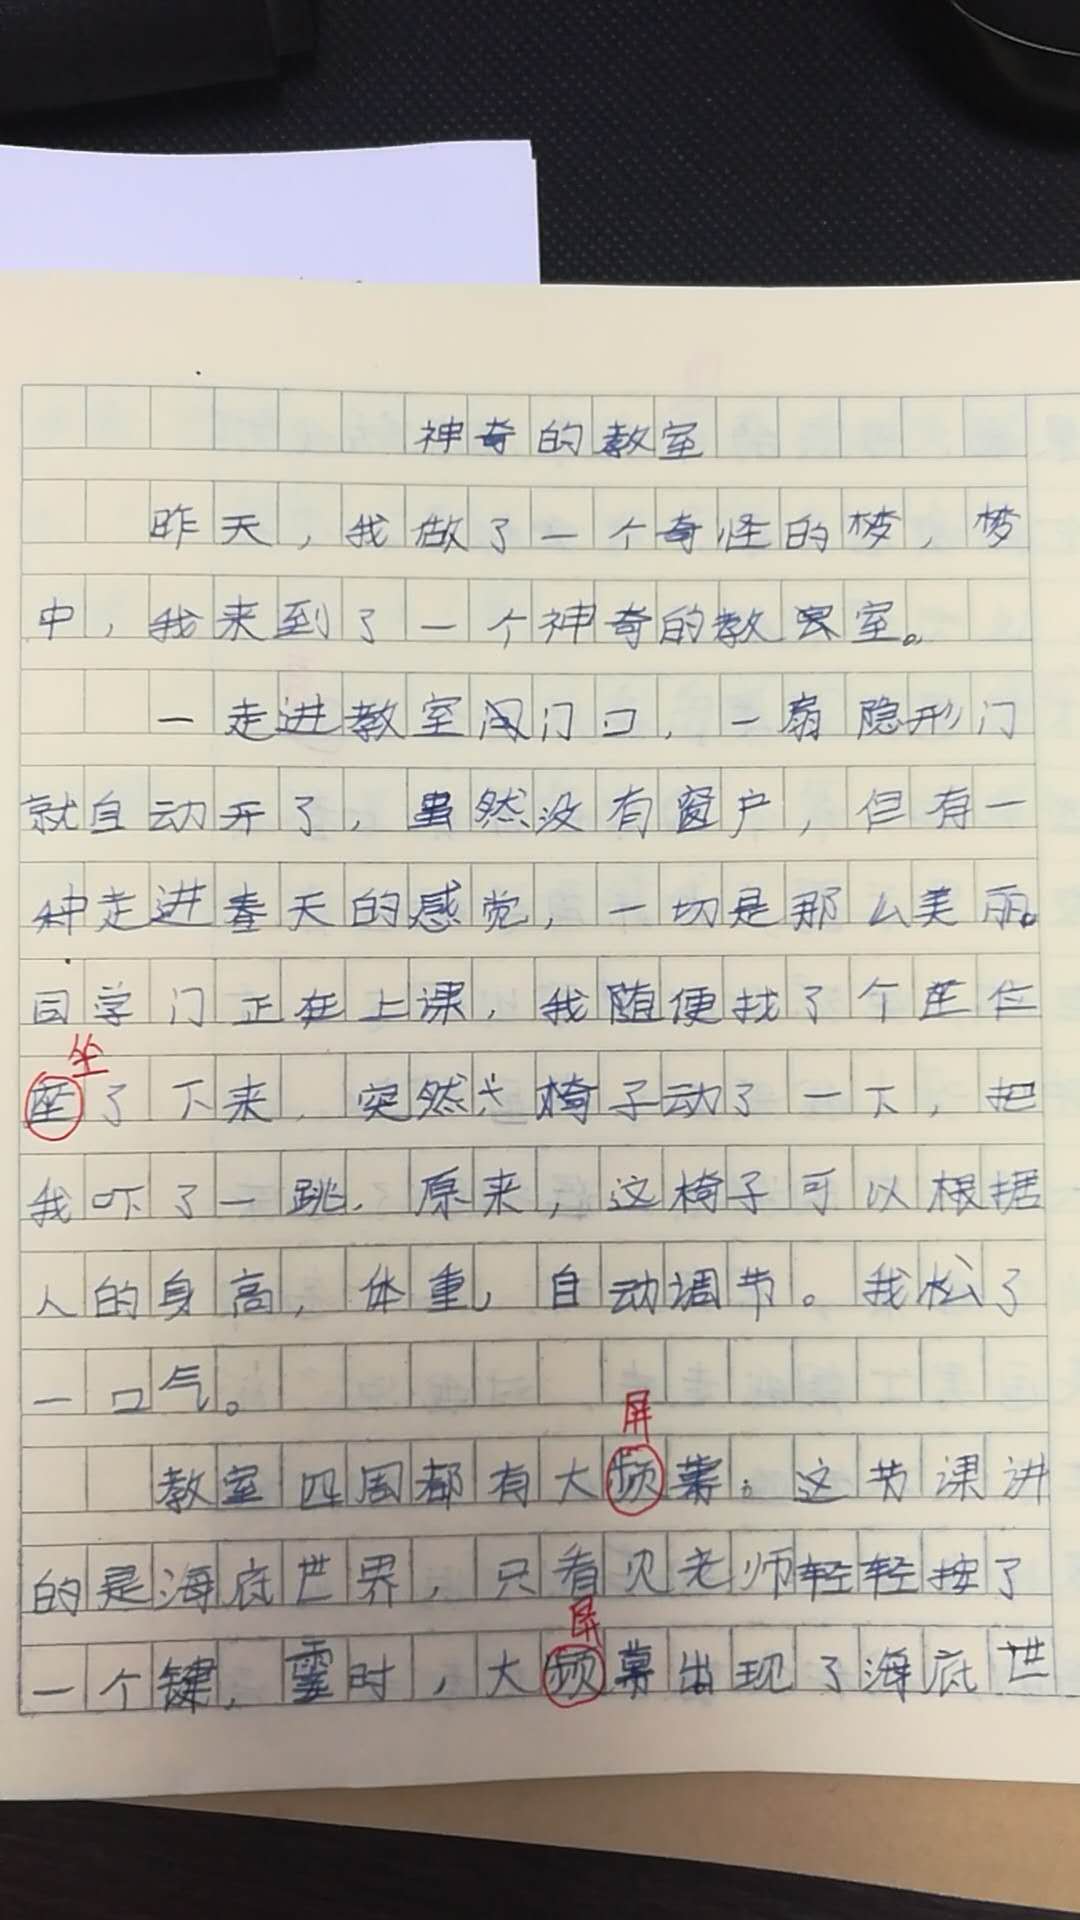 神奇的教室
昨天，我做了一个奇怪的梦，梦
中，我来到了一个神奇的教室。
一走进教室门口，一扇隐形门
就自动开了，虽然没有窗户，但有一
种走进春天的感觉，一切是那么美丽。
同学门正在上课，我随便找了个座位
坐
座了下来，突然椅子动了一下，把
我吓了一跳，原来，这椅子可以根据
人的身高，体重，自动调节。我松了
一口气。
屏
教室四周都有大频幕。这节课讲
的是海底世界，只看见老师轻轻按了
屏
一个键，霎时，大频幕出现了海底世